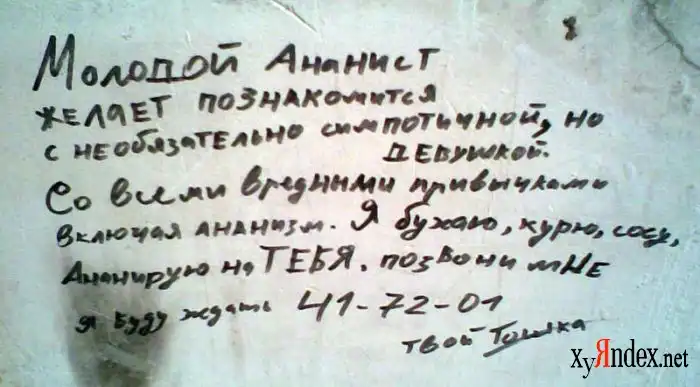 Молодой Ананист
желает познакомится
с необязательно симпотичной, но
девушкой.
Со всеми вредными привычками
включая ананизм. Я бухаю, курю, сосу,
Ананирую на ТЕБЯ. позвони мне
я буду ждать 41-72-01
твой Тошка
ХуЯndex.net